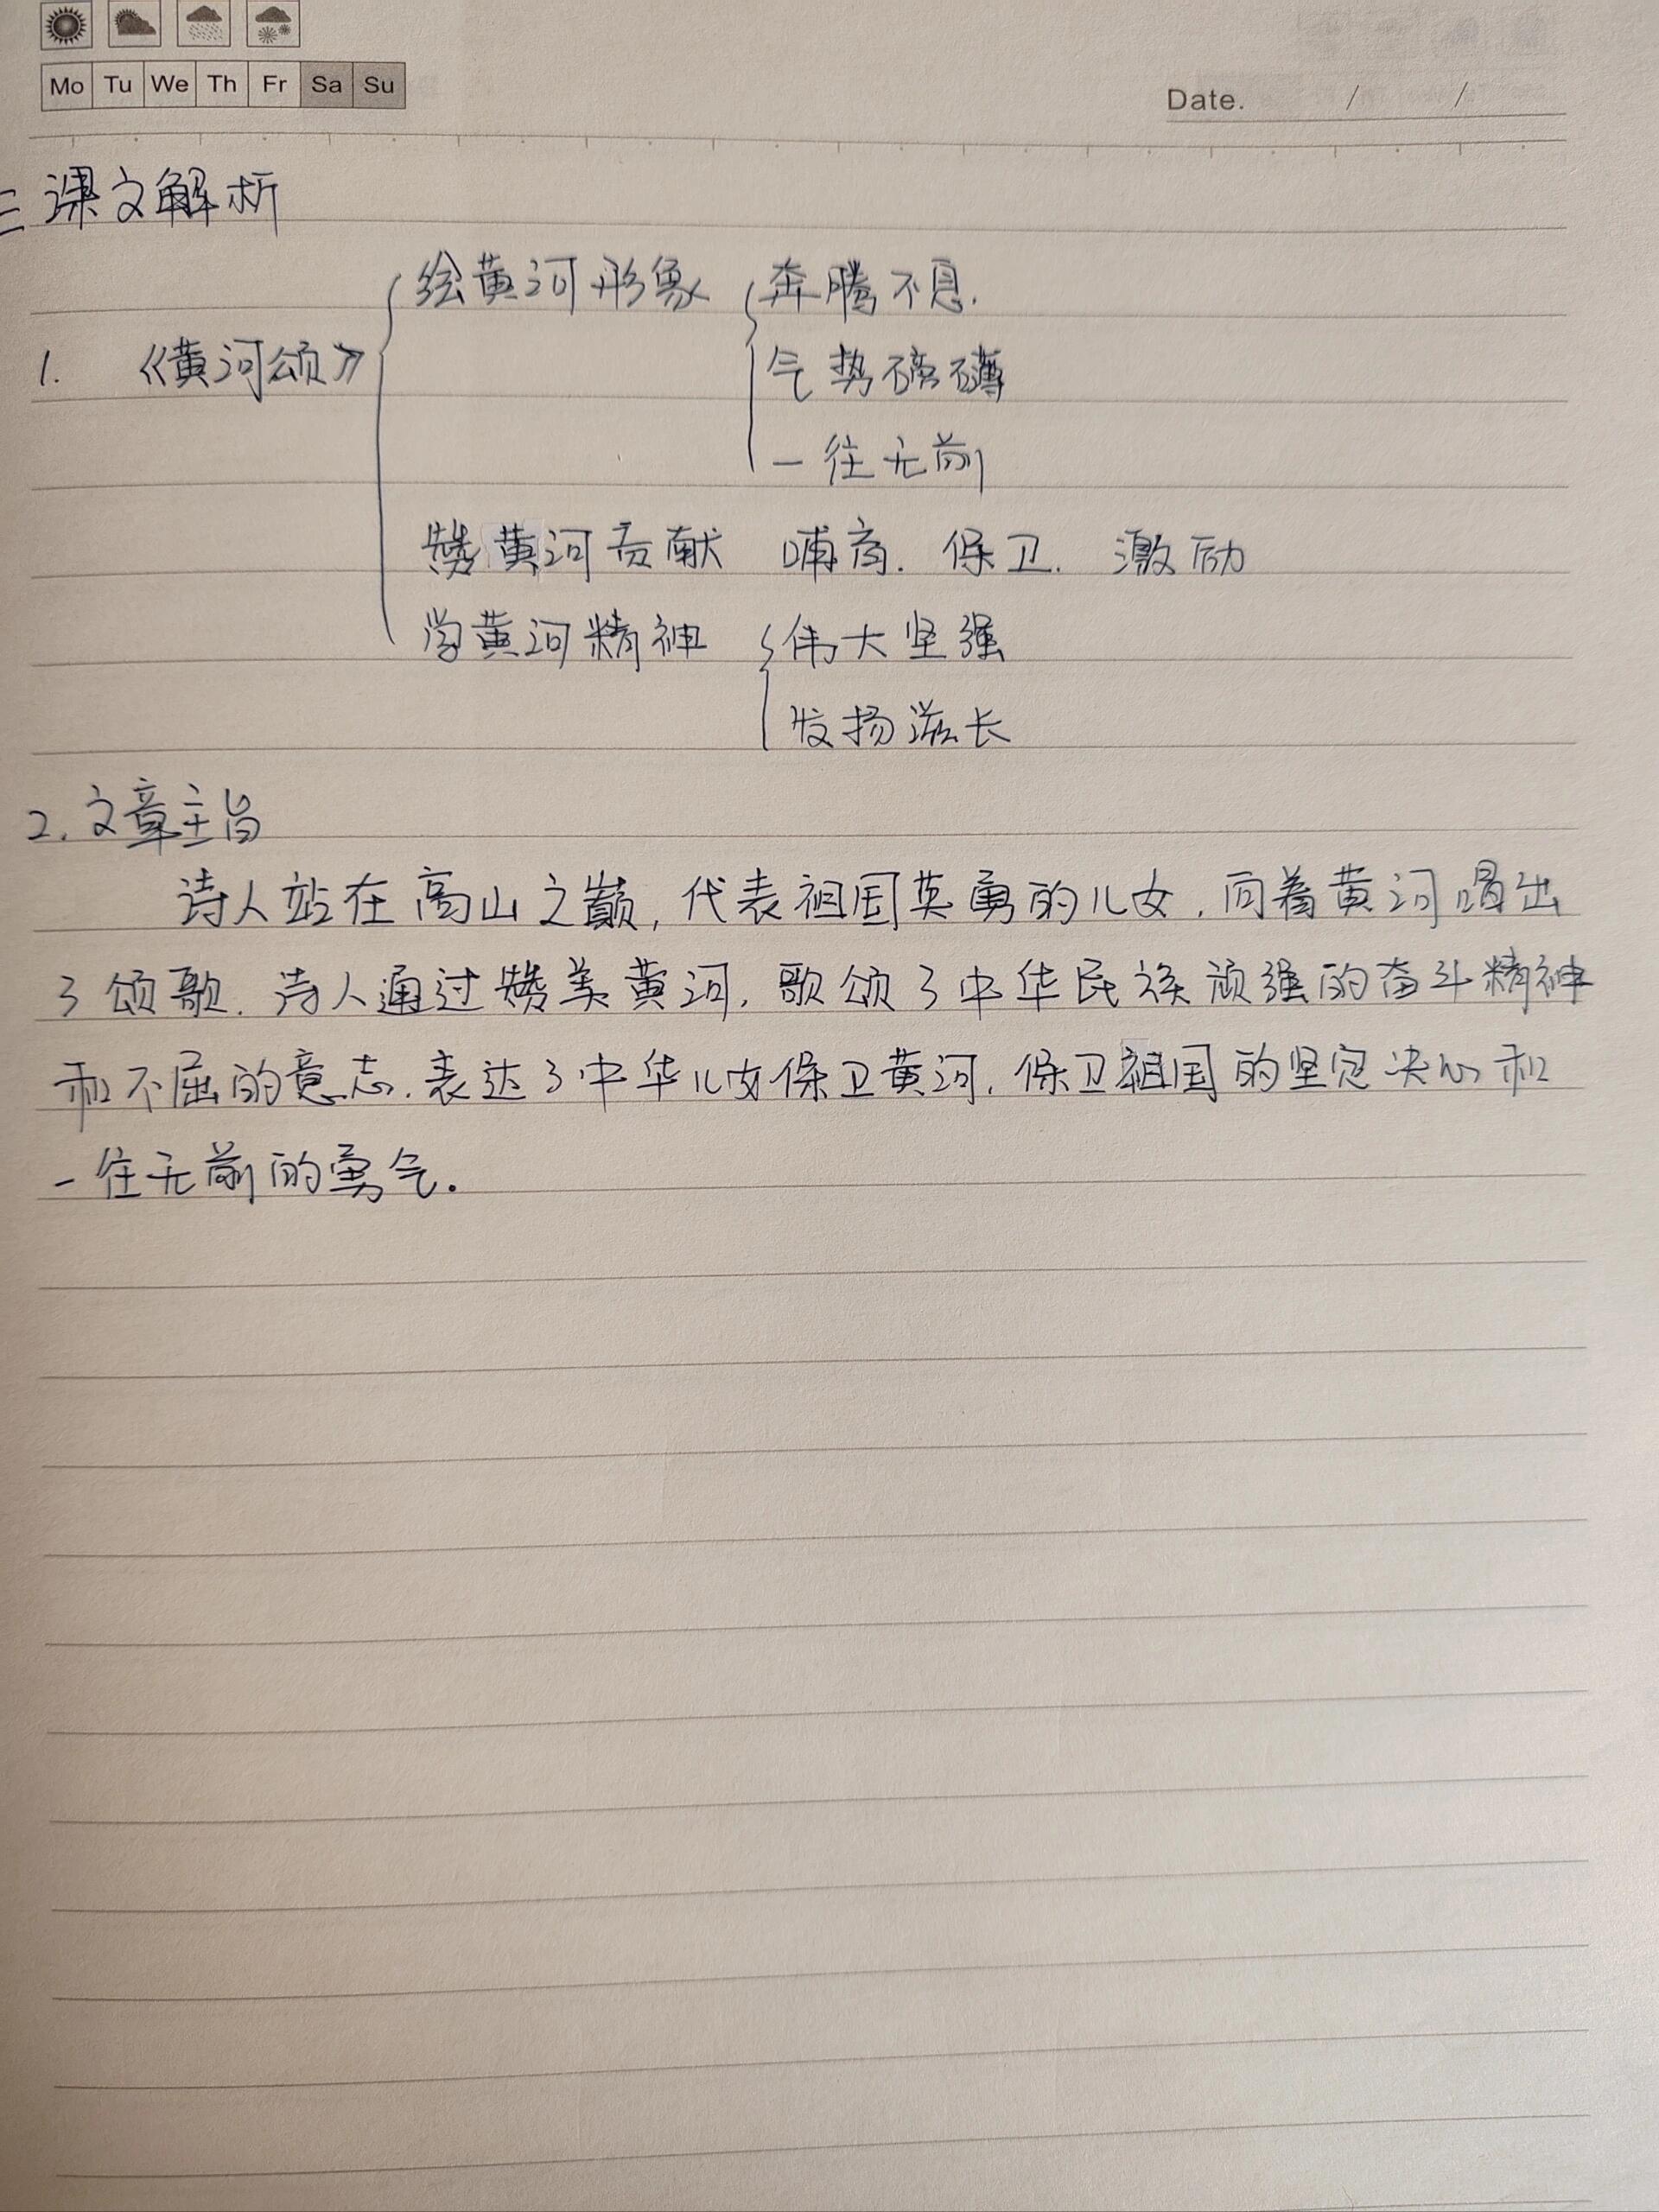 Mo Tu We Th Fr Sa Su
Date. / /
三课文解析
绘黄河形象 奔腾不息.
1. 《黄河颂》 气势磅礴
一往无前
赞黄河贡献 哺育. 保卫. 激励
学黄河精神 伟大坚强
发扬滋长
2. 文章主旨
诗人站在高山之巅, 代表祖国英勇的儿女, 向着黄河唱出
了颂歌. 诗人通过赞美黄河, 歌颂了中华民族顽强的奋斗精神
和不屈的意志. 表达了中华儿女保卫黄河, 保卫祖国的坚定决心和
一往无前的勇气.